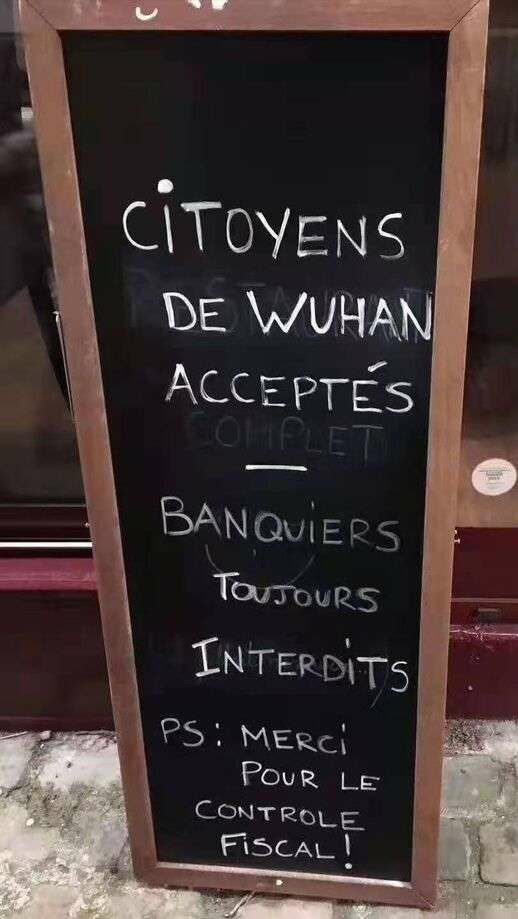 CiTOYENS
DE WUHAN
ACCEPTÉS
COMPLET
BANQUiERS
TOUJOURS
INTERDiTS
PS : MERCi
POUR LE
CONTROLE
FiSCAL !